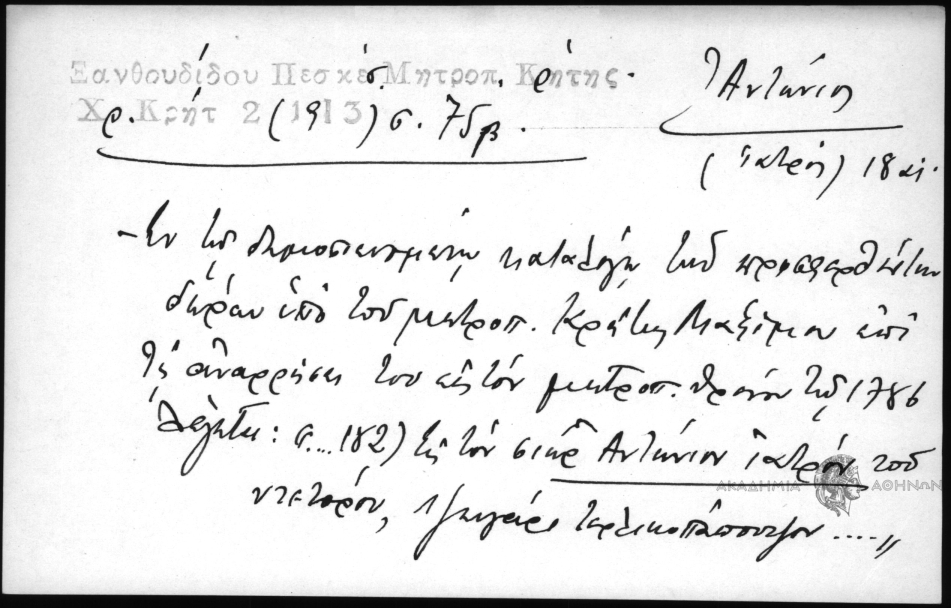 Ξανθουδίδου Πεσκέσ. Μητροπ. Κρήτης
Χρ. Κρήτ 2 (1913) σ. 75β.
Ἀντώνιος
(ἰατρός) 18 αι.
– Ἐν τῷ δημοσιευομένῳ καταλόγῳ τῶν
δώρων ὑπὸ τοῦ μητροπ. Κρήτης Μαξίμου ἐπὶ
τῇ ἀναρρήσει του εἰς τὸν μητροπ. θρόνον τῷ 1786
λέγεται: σ.... 182) Εἰς τὸν σιὸρ Ἀντώνιον ἰατρόν τοῦ
ντετόρου, 1 ζευγάρι ....»
ΑΚΑΔΗΜΙΑ ΑΘΗΝΩΝ